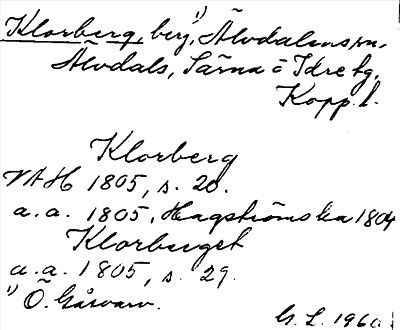 Klorberg, berg, 1) Älvdalens sn,
Älvdals, Särna o Idre tg.
Kopp. l.
Klorberg
VAH 1805, s. 20.
a.a. 1805, Hagströmska 1804
Klorberget
a.a. 1805, s. 29.
1) Ö.
G. L. 1960